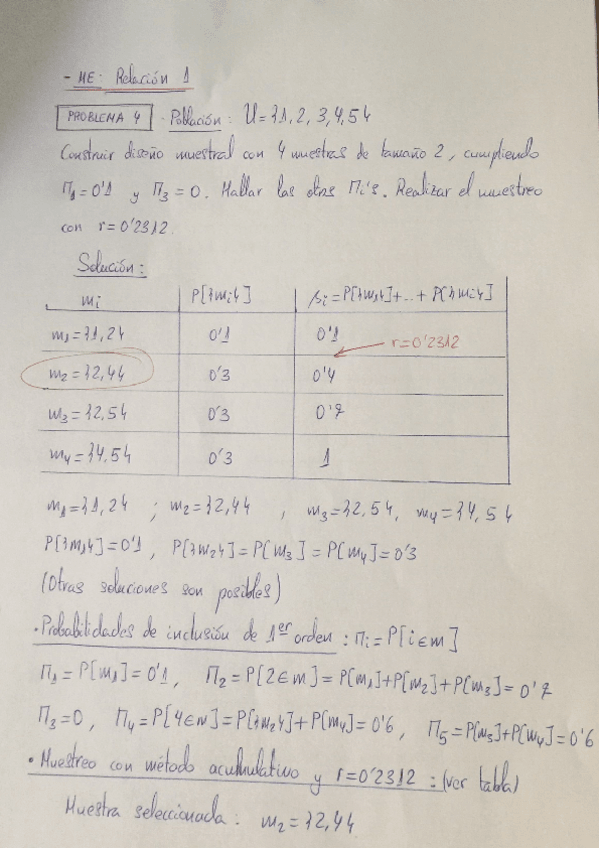 - ME: Relación 1
PROBLEMA 4 · Población: U={1,2,3,4,5}
Construir diseño muestral con 4 muestras de tamaño 2, cumpliendo
Π₁=0'1 y Π₃=0. Hallar las otras Πi's. Realizar el muestreo
con r=0'2312.
Solución:
mi P[{mi}] si=P[{m1}]+...+P[{mi}]
m1={1,2} 0'1 0'1
r=0'2312
m2={2,4} 0'3 0'4
m3={2,5} 0'3 0'7
m4={4,5} 0'3 1
m1={1,2} ; m2={2,4} , m3={2,5}, m4={4,5}
P[{m1}]=0'1, P[{m2}]=P[m3]=P[m4]=0'3
(Otras soluciones son posibles)
· Probabilidades de inclusión de 1er orden: Πi=P[i∈m]
Π₁=P[m1]=0'1, Π₂=P[2∈m]=P[m1]+P[m2]+P[m3]=0'7
Π₃=0, Π₄=P[4∈m]=P[{m2}]+P[m4]=0'6, Π₅=P[m3]+P[m4]=0'6
· Muestreo con método acumulativo y r=0'2312: (ver tabla)
Muestra seleccionada: m2={2,4}